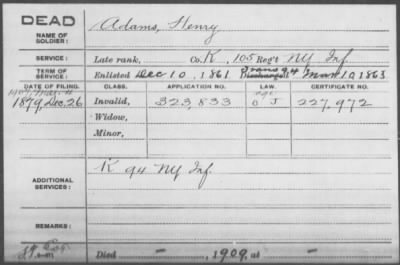 DEAD
NAME OF SOLDIER:
Adams, Henry
SERVICE:
Late rank, Co. K, 105 Reg't NY Inf.
TERM OF SERVICE:
Enlisted Dec 10, 1861 Discharged Trans 94 Mar 10, 1863
DATE OF FILING. CLASS. APPLICATION NO. LAW. CERTIFICATE NO.
1879, Dec. 26 Invalid, 323,833 227,972
Widow,
Minor,
ADDITIONAL SERVICES:
K 94 NY Inf.
REMARKS:
Died — 1909, at —